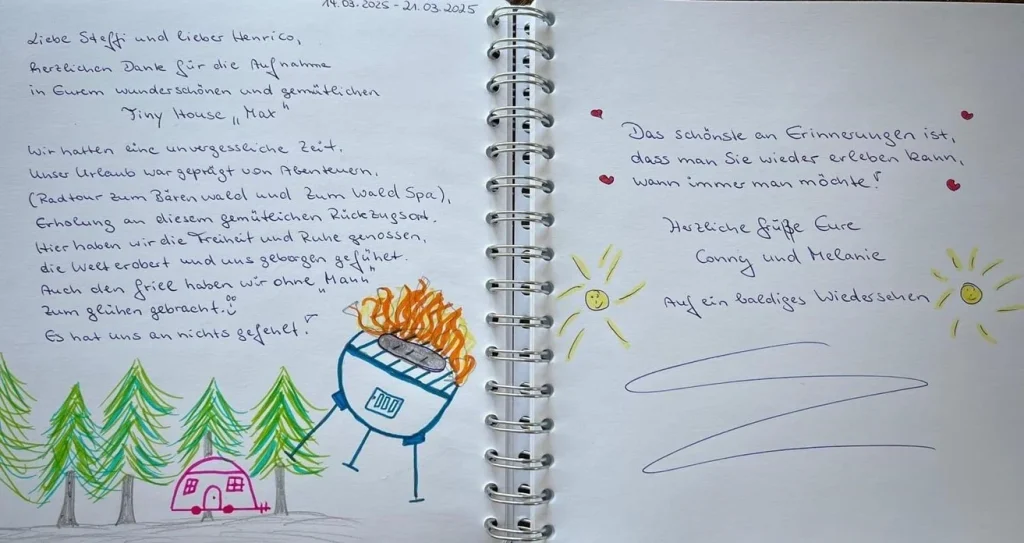 14.03.2025 - 21.03.2025
Liebe Steffi und lieber Henrico,
Herzlichen Dank für die Aufnahme
in Eurem wunderschönen und gemütlichen
Tiny House „Max“
Wir hatten eine unvergessliche Zeit.
Unser Urlaub war geprägt von Abenteuern,
(Radtour zum Bärenwald und zum Wald Spa),
Erholung an diesem gemütlichen Rückzugsort.
Hier haben wir die Freiheit und Ruhe genossen,
die Welt erobert und uns geborgen gefühlt.
Auch den Griel haben wir ohne „Mann“
zum glühen gebracht.
Es hat uns an nichts gefehlt!
Das schönste an Erinnerungen ist,
dass man Sie wieder erleben kann,
wann immer man möchte!
Herzliche Grüße Eure
Conny und Melanie
Auf ein baldiges Wiedersehen